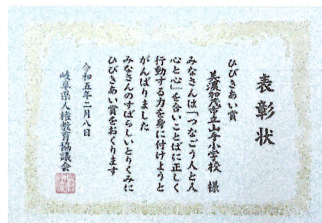 表彰状
ひびきあい賞
美濃加茂市立山手小学校 様
みなさんは「つなごう人と人
心と心」を合いことばに正しく
行動する力を身に付けようと
がんばりました
みなさんのすばらしいとりくみに
ひびきあい賞をおくります
令和五年二月八日
岐阜県人権教育協議会